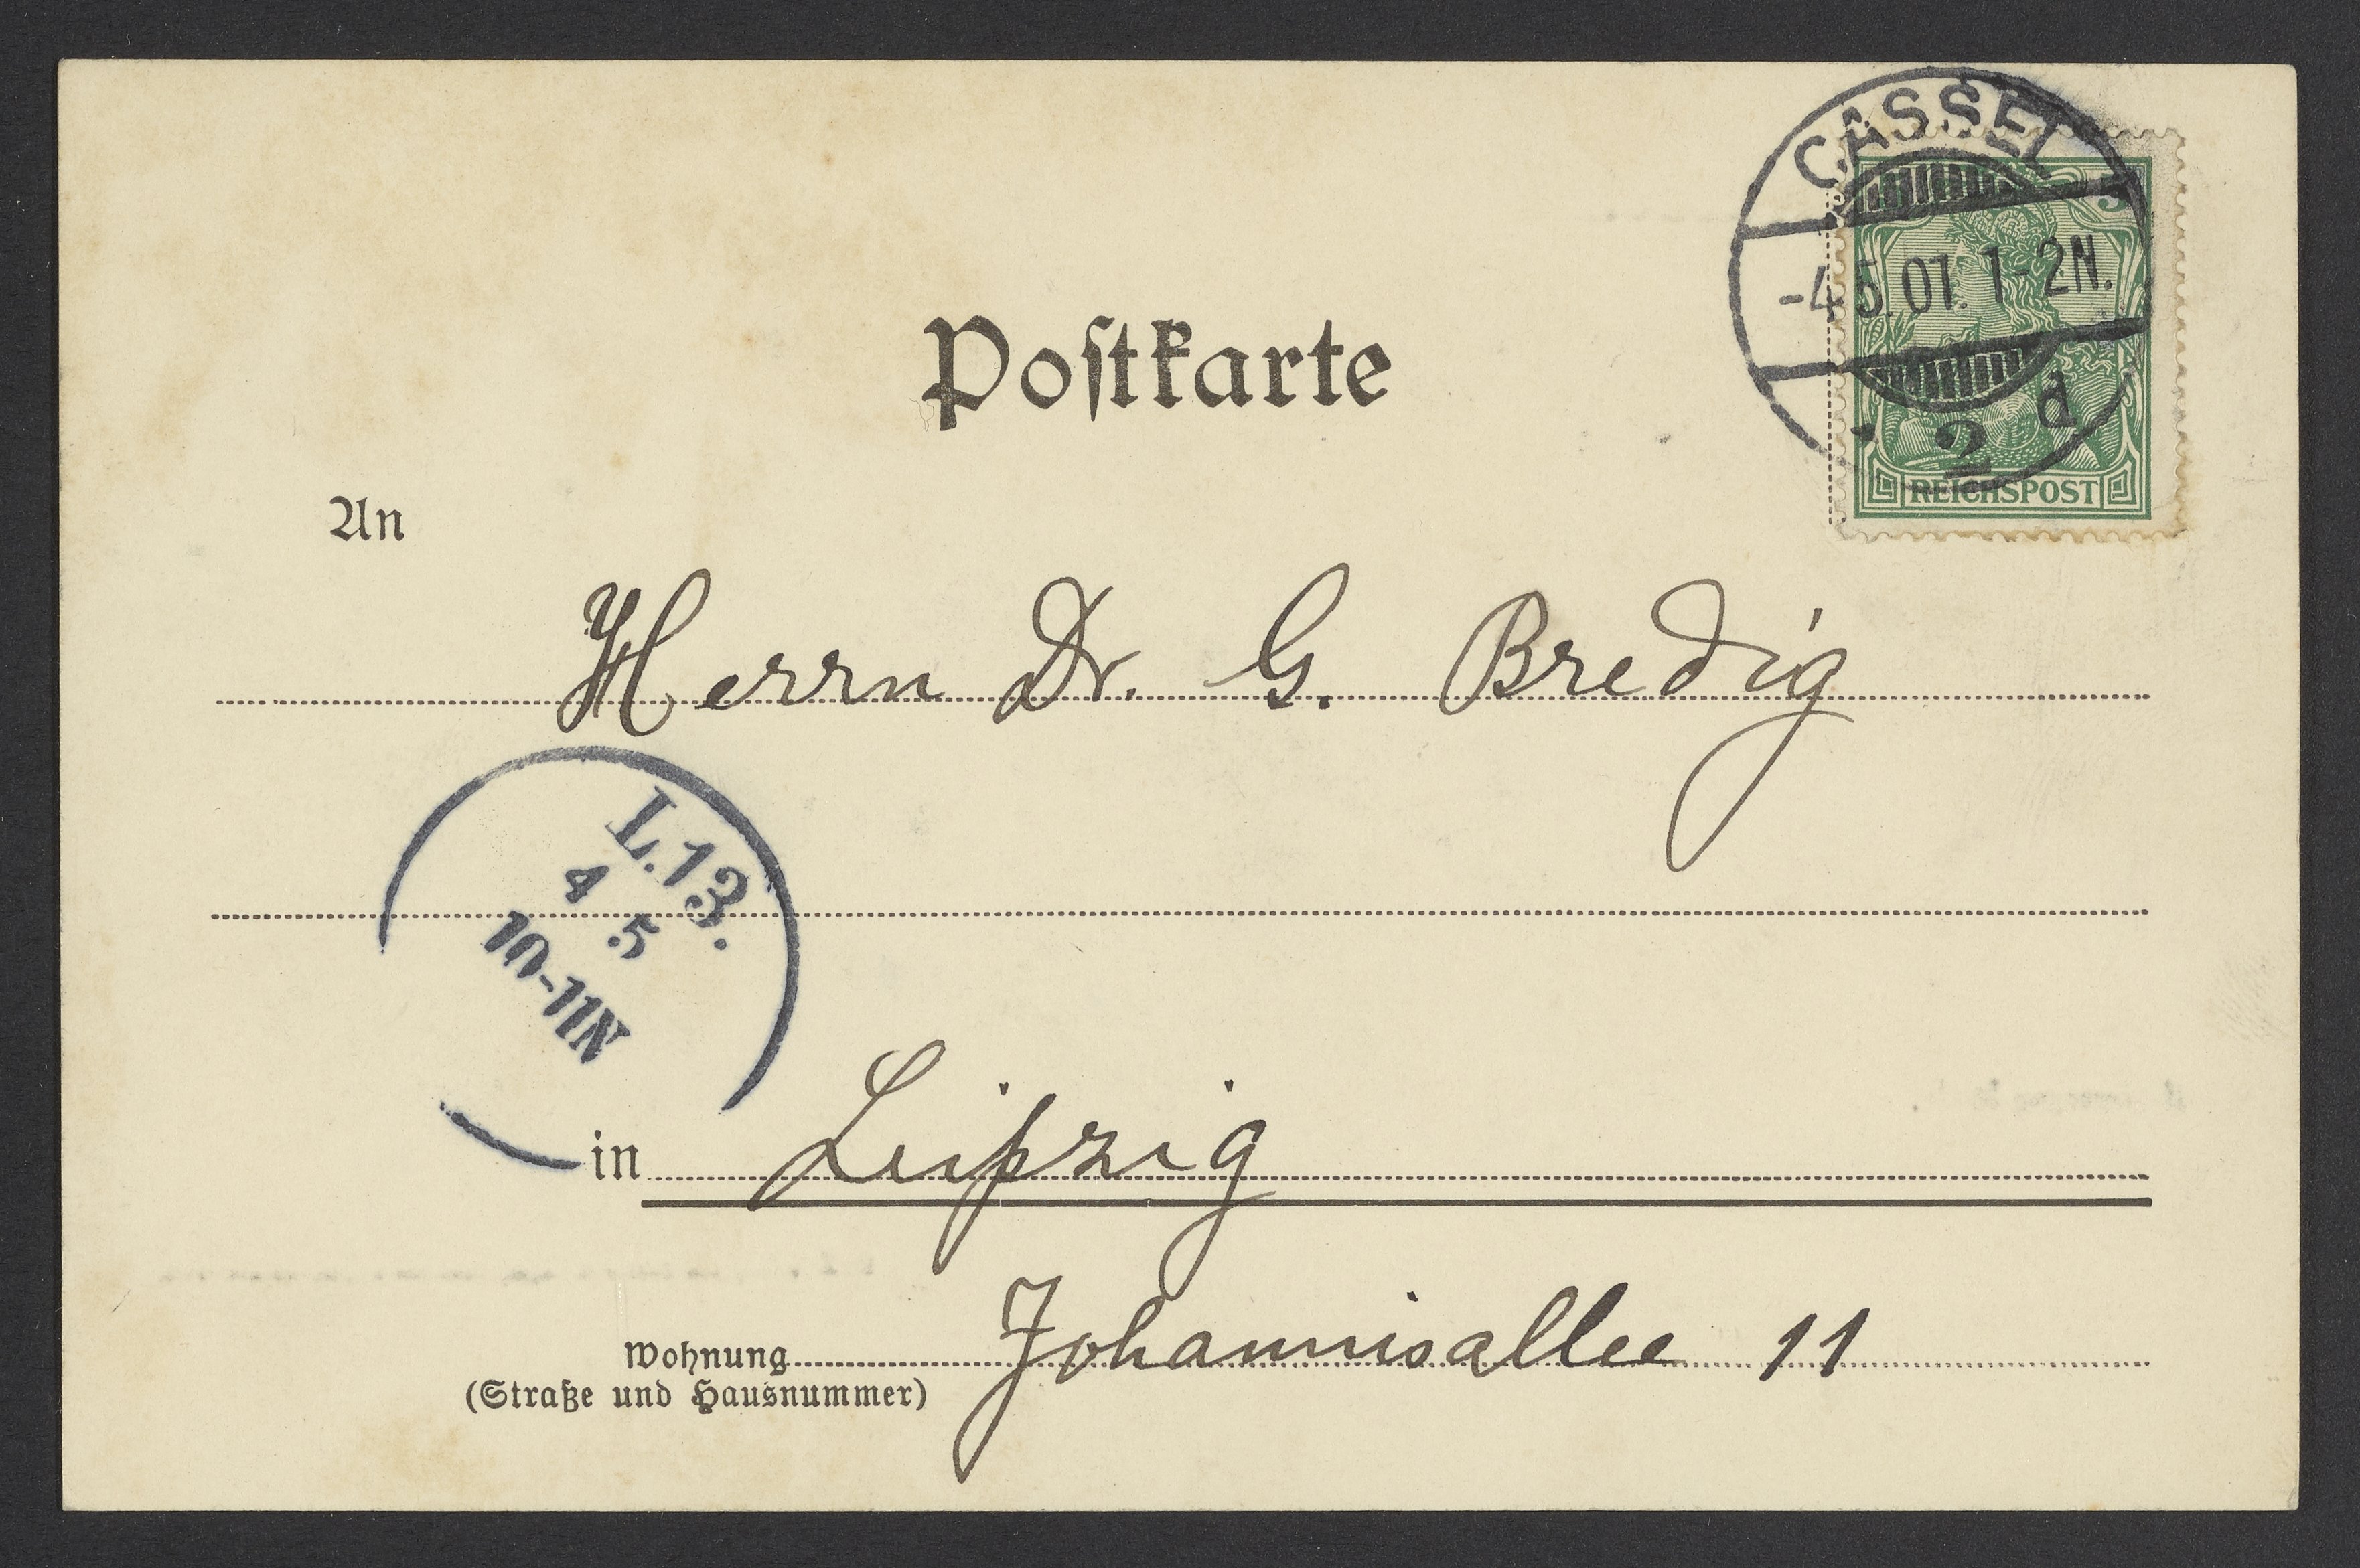 CASSEL
5
-4.5.01.1-2N.
* 2 d
REICHSPOST
Postkarte
An
Herrn Dr. G. Bredig
L.13.
4 5
10-11N
in Leipzig
Wohnung Johannisallee 11
(Straße und Hausnummer)